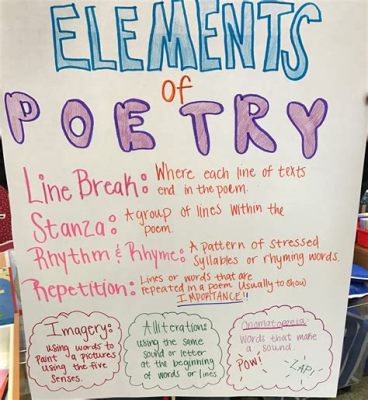 ELEMENTS
of
POETRY
Line Break: Where each line of texts
end in the poem.
Stanza: A group of lines within the
poem.
Rhythm & Rhyme: A pattern of stressed
syllables or rhyming words.
Repetition: Lines or words that are
repeated in a poem. Usually to show
IMPORTANCE!!
Imagery:
using words to
Paint a pictures
using the five
senses.
Alliteration:
using the same
sound or letter
at the beginning
of words or lines.
Onomatopoeia
Words that make
a sound.
POW!
ZAP!